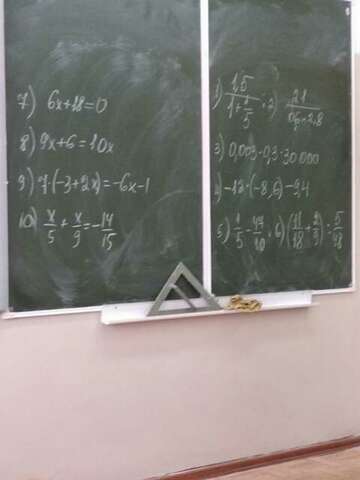 7) 6x+18=0
8) 9x+6=10x
9) 7·(-3+2x)=-6x-1
10) x/5 + x/9 = -14/15
1) 1,5/(1+1/5) 2) 21/
3) 0,003·0,3·30 000
4) -12·(-8,6)-9,4
5) 1/5 - 47/40 6) (11/18 + 2/9) : 5/48